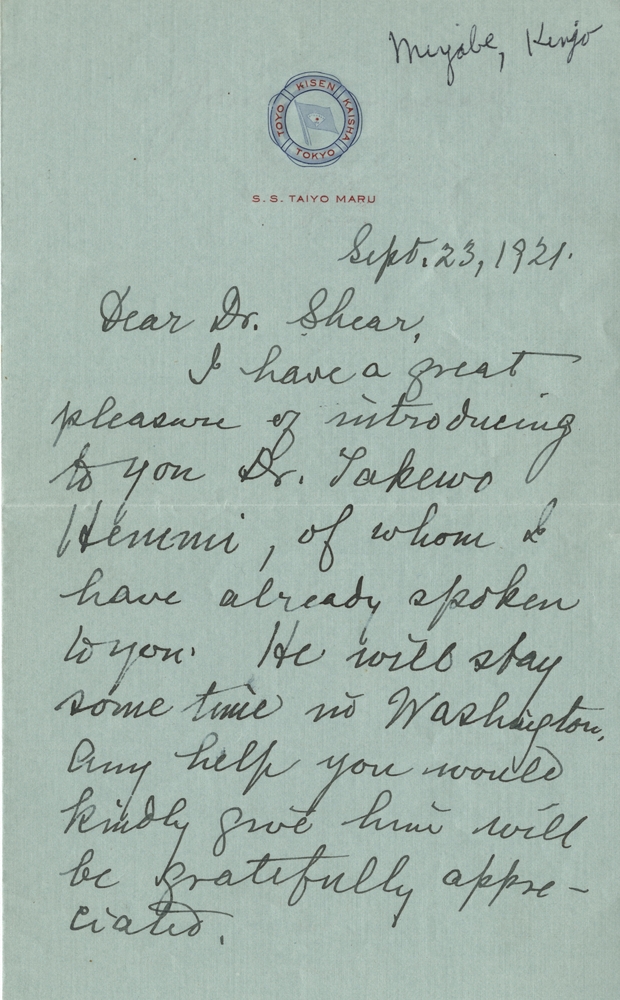 Miyabe, Kingo
TOYO KISEN KAISHA
TOKYO
S. S. TAIYO MARU
Sept. 23, 1921.
Dear Dr. Shear,
I have a great
pleasure of introducing
to you Dr. Takewo
Hemmi, of whom I
have already spoken
to you. He will stay
some time in Washington.
Any help you would
kindly give him will
be gratefully appre-
ciated.